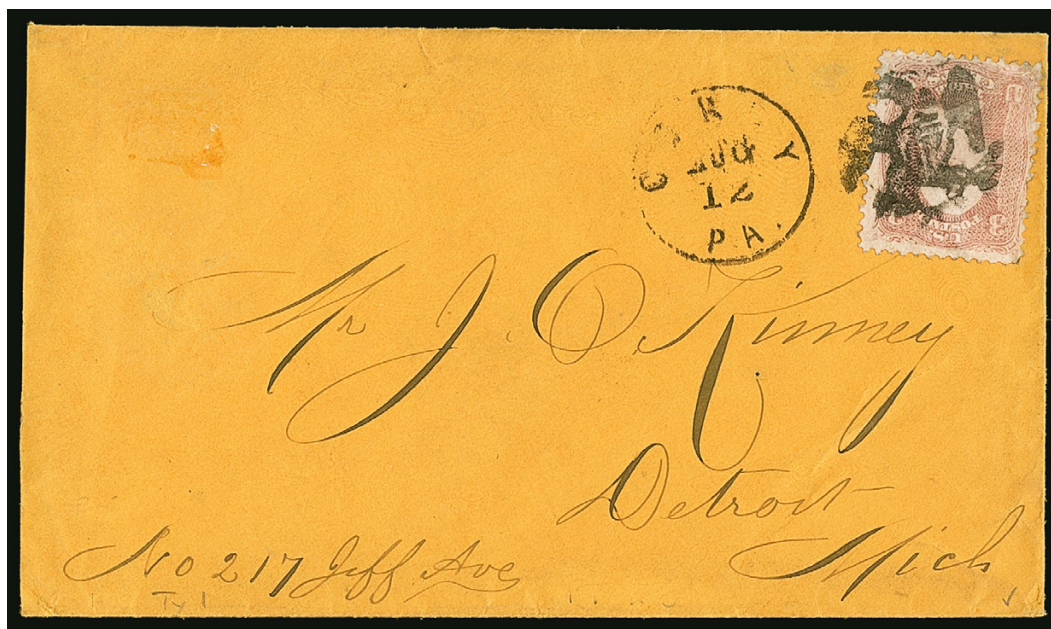 CORRY
AUG
12
PA.
3 3
U.S. POSTAGE
Mr J. O. Kinney
Detroit
Mich
No 217 Jeff Ave
Ty 1